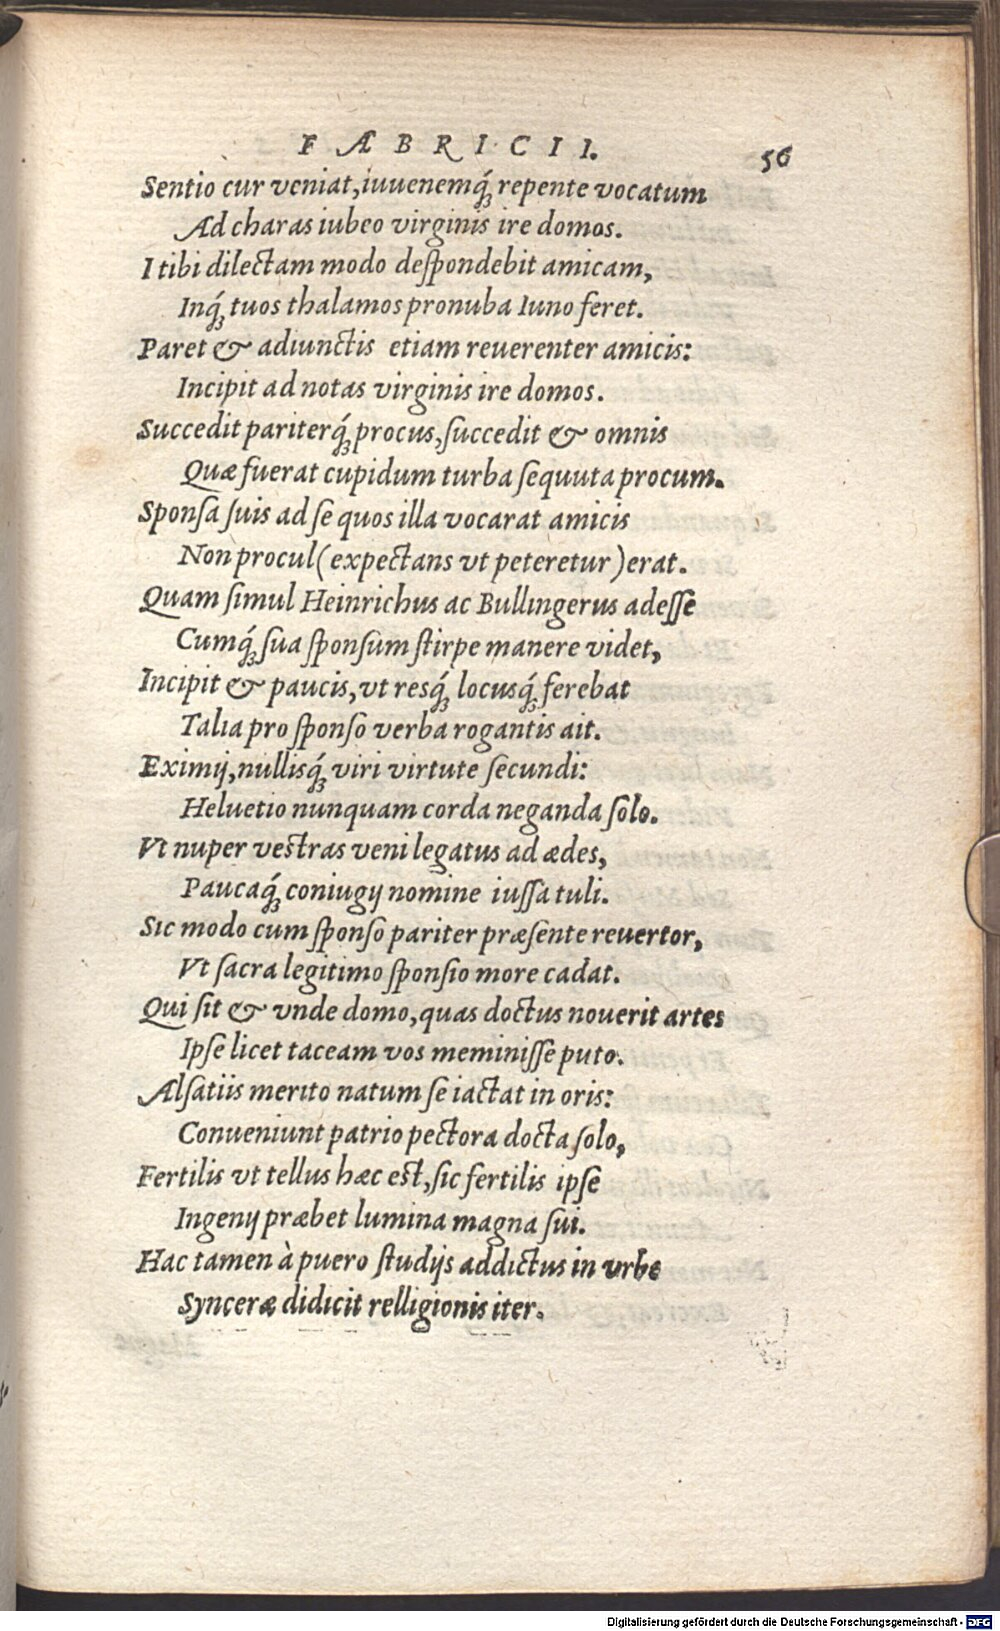 FABRICII. 56
Sentio cur veniat, iuuenemq́; repente vocatum
Ad charas iubeo virginis ire domos.
I tibi dilectam modo deſpondebit amicam,
Inq́; tuos thalamos pronuba Iuno feret.
Paret & adiunctis etiam reuerenter amicis:
Incipit ad notas virginis ire domos.
Succedit pariterq́; procus, ſuccedit & omnis
Quæ fuerat cupidum turba ſequuta procum.
Sponſa ſuis ad ſe quos illa vocarat amicis
Non procul (expectans vt peteretur) erat.
Quam ſimul Heinrichus ac Bullingerus adeſſe
Cumq́; ſua ſponſum ſtirpe manere videt,
Incipit & paucis, vt resq́; locusq́; ferebat
Talia pro ſponſo verba rogantis ait.
Eximij, nullisq́; viri virtute ſecundi:
Heluetio nunquam corda neganda ſolo.
Vt nuper veſtras veni legatus ad ædes,
Paucaq́; coniugij nomine iuſſa tuli.
Sic modo cum ſponſo pariter præſente reuertor,
Vt ſacra legitimo ſponſio more cadat.
Qui ſit & vnde domo, quas doctus nouerit artes
Ipſe licet taceam vos meminiſſe puto.
Alſatiis merito natum ſe iactat in oris:
Conueniunt patrio pectora docta ſolo,
Fertilis vt tellus hæc eſt, ſic fertilis ipſe
Ingenij præbet lumina magna ſui.
Hac tamen à puero ſtudijs addictus in vrbe
Synceræ didicit relligionis iter.
Digitalisierung gefördert durch die Deutsche Forschungsgemeinschaft - DFG